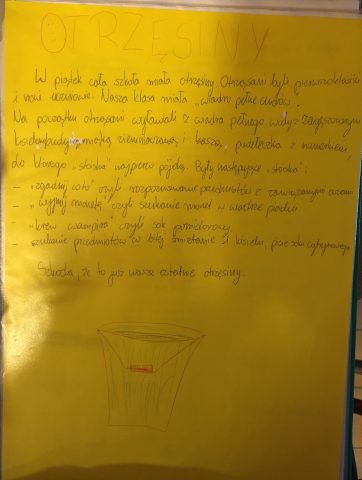 OTRZĘSINY
W piątek cała szkoła miała otrzęsiny. Otrzęsani byli pierwszoklasiści
i nowi uczniowie. Nasza klasa miała "wiadro pełne cudów".
Na początku otrzęsani wyławiali z wiadra pełnego wody z
mąką ziemniaczaną i kaszą, pudełeczka z numerkiem,
do którego "stoiska" najpierw pójdą. Były następujące "stoiska":
- "zgadnij co to" czyli rozpoznawanie przedmiotów z zawiązanymi oczami
- "wyjmij monetę" czyli szukanie monet w
"krew wampira" czyli sok pomidorowy
- szukanie przedmiotów w bitej śmietanie i kisielu, picie soku cytrynowego
Szkoda, że to już nasze ostatnie otrzęsiny.